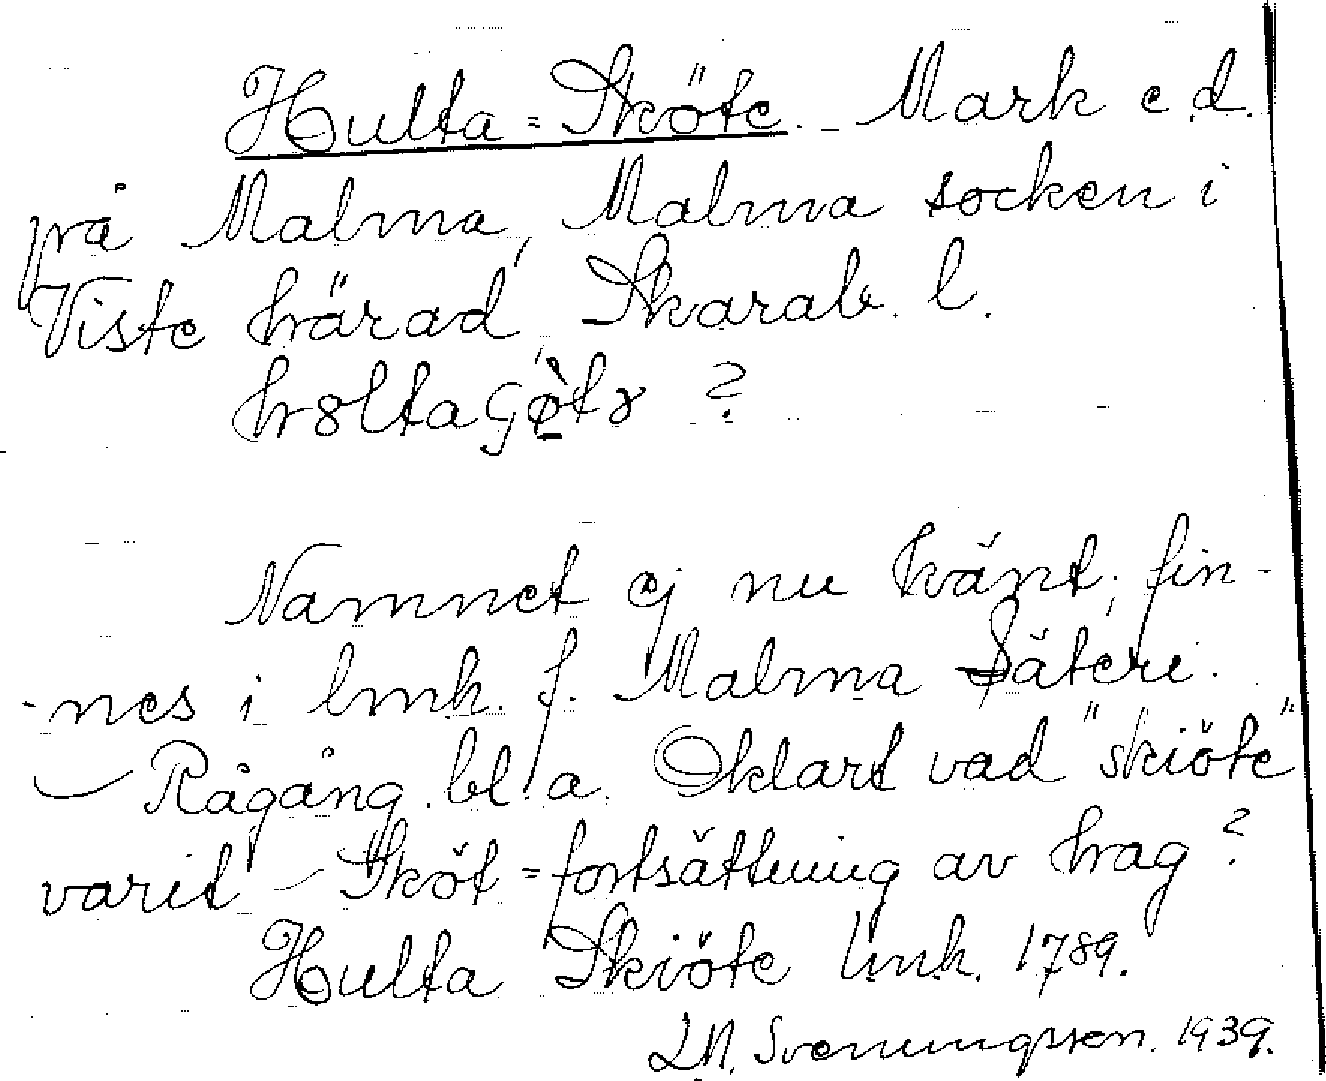 Hulta=Sköte. Mark e.d.
på Malma, Malma socken i
Viste härad, Skarab. l.
?
Namnet ej nu känt, fin-
-nes i lmh. f. Malma Säteri.
- Rågång bl.a. Oklart vad "skiöte"
varit - Sköt=fortsättning av hag?
Hulta Skiöte lmh. 1789.
L.N. Svenungsson. 1939.